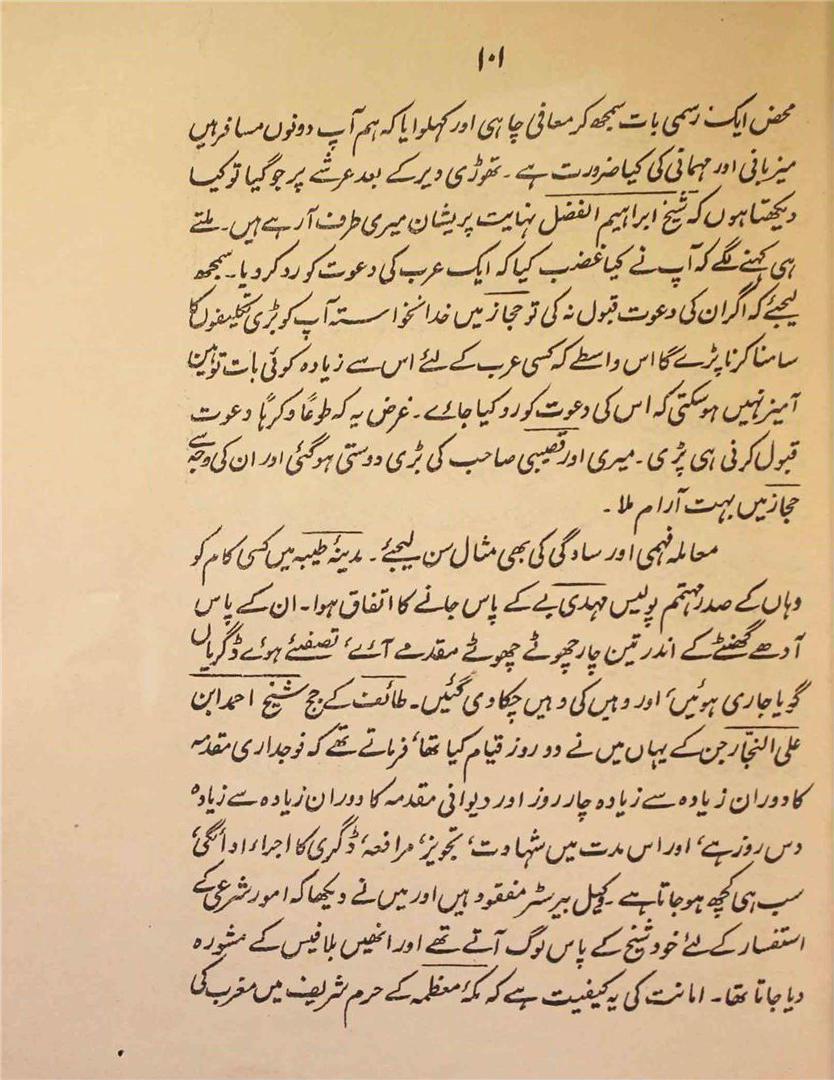 ۱۰۱
محض ایک رسمی بات سمجھ کر معافی چاہی اور کہلوایا کہ ہم آپ دونوں مسافر ہیں
میزبانی اور مہمانی کی کیا ضرورت ہے ۔ تھوڑی دیر کے بعد عرشے پر جو گیا تو کیا
دیکھتا ہوں کہ شیخ ابراہیم الفضل نہایت پریشان میری طرف آرہے ہیں۔ ملتے
ہی کہنے لگے کہ آپ نے کیا غضب کیا کہ ایک عرب کی دعوت کو رد کر دیا۔ سمجھ
لیجئے کہ اگر ان کی دعوت قبول نہ کی تو حجاز میں خدانخواستہ آپ کو بڑی تکلیفوں کا
سامنا کرنا پڑے گا اس واسطے کہ کسی عرب کے لئے اس سے زیادہ کوئی بات توہین
آمیز نہیں ہوسکتی کہ اس کی دعوت کو رد کیا جائے ۔ غرض یہ کہ طوعًا و کرہًا دعوت
قبول کرنی ہی پڑی ۔ میری اور قصیبی صاحب کی بڑی دوستی ہوگئی اور ان کی وجہ سے
حجاز میں بہت آرام ملا ۔
معاملہ فہمی اور سادگی کی بھی مثال سن لیجئے ۔ مدینۂ طیبہ میں کسی کام کو
وہاں کے صدر مہتمم پولیس مہدی بے کے پاس جانے کا اتفاق ہوا۔ ان کے پاس
آدھے گھنٹے کے اندر تین چار چھوٹے چھوٹے مقدمے آئے، تصفیئے ہوئے ڈگریاں
گویا جاری ہوئیں، اور وہیں کی وہیں چکا دی گئیں۔ طائف کے جج شیخ احمد ابن
علی النجّار جن کے یہاں میں نے دو روز قیام کیا تھا، فرماتے تھے کہ فوجداری مقدمہ
کا دوران زیادہ سے زیادہ چار روز اور دیوانی مقدمہ کا دوران زیادہ سے زیادہ
دس روز ہے، اور اس مدت میں شہادت، تجویز، مرافعہ، ڈگری کا اجراء ادائگی،
سب ہی کچھ ہوجاتا ہے ۔ وکیل بیرسٹر مفقود ہیں اور میں نے دیکھا کہ امور شرعی کے
استفسار کے لئے خود شیخ کے پاس لوگ آتے تھے اور انھیں بلا فیس کے مشورہ
دیا جاتا تھا ۔ امانت کی یہ کیفیت ہے کہ مکۂ معظمہ کے حرم شریف میں مغرب کی